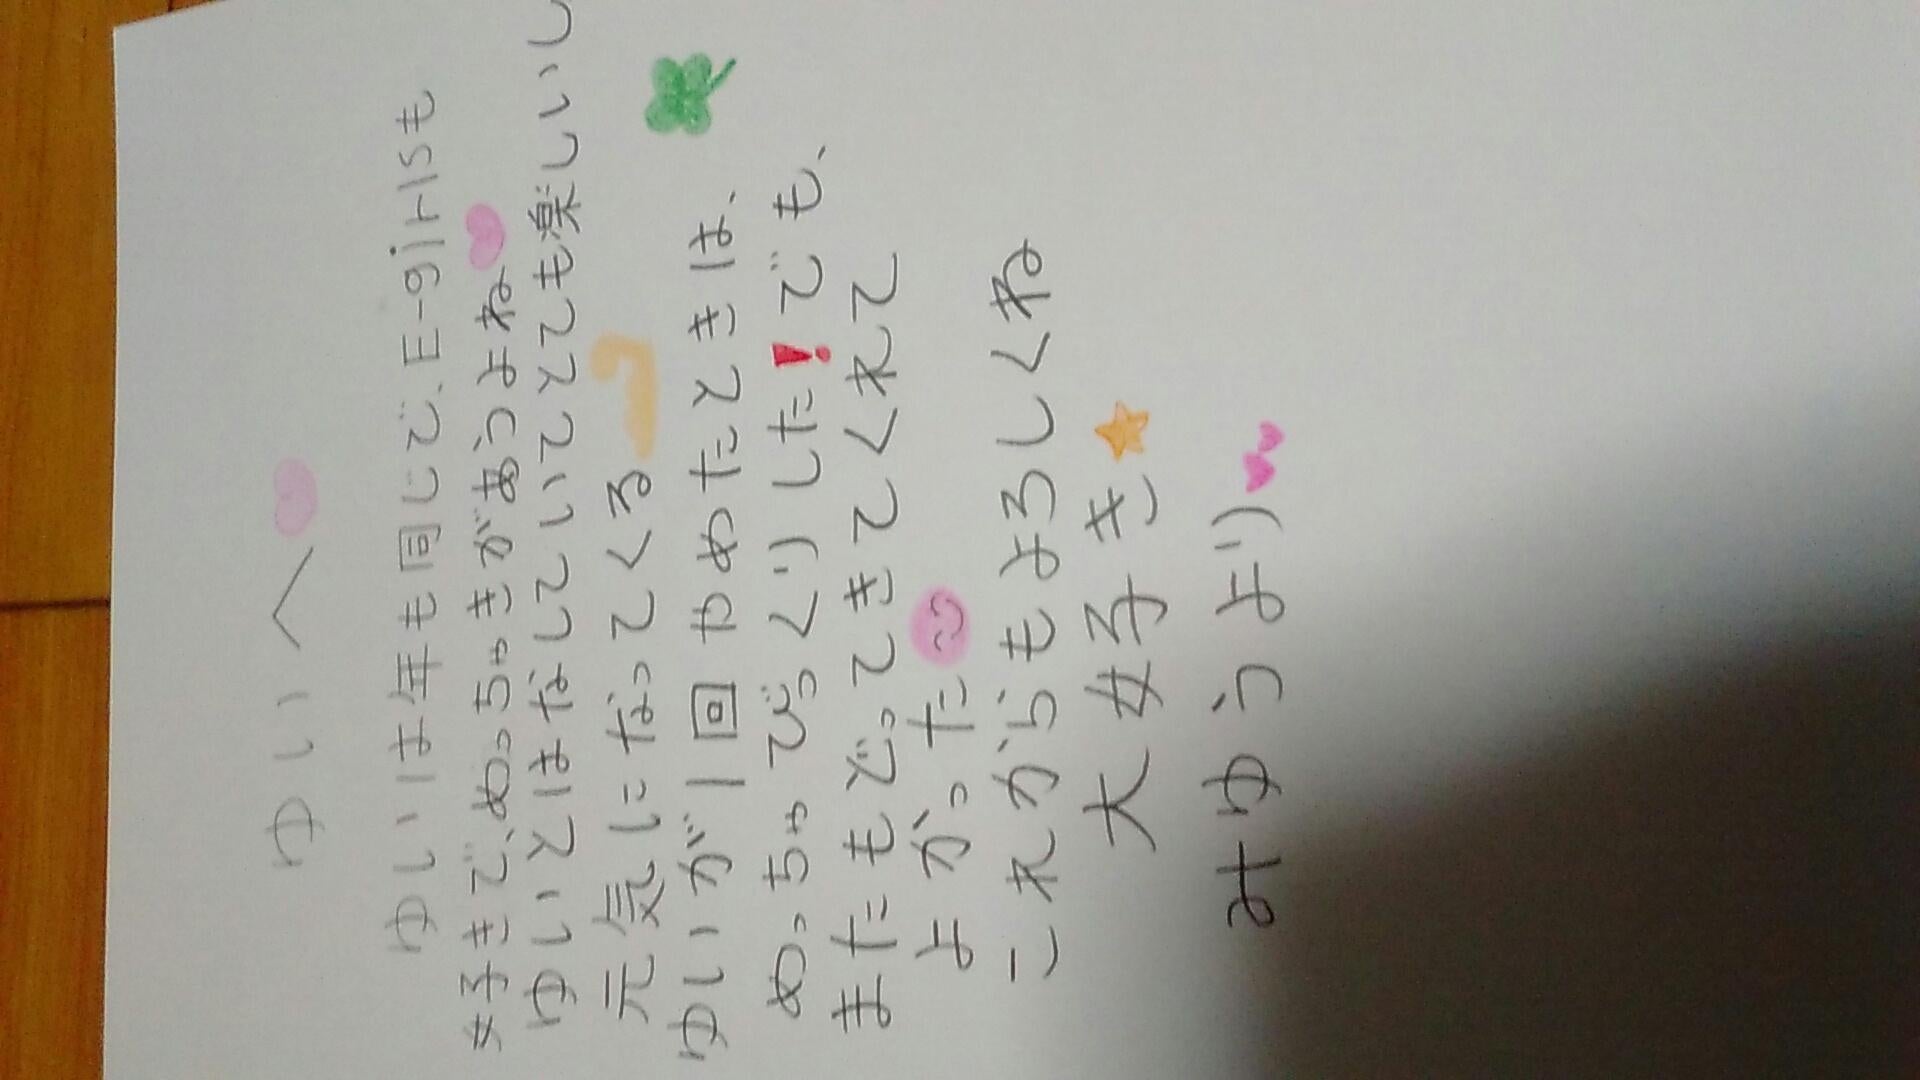 ゆいへ
ゆいは年も同じで、E-girlsも
好きで、めっちゃきがあうよね
ゆいとはなしていてとても楽しいし
元気になってくる
ゆいが1回やめたときは、
めっちゃびっくりした!でも、
またもどってきてくれて
よかった
これからもよろしくね
大好き
みゆうより